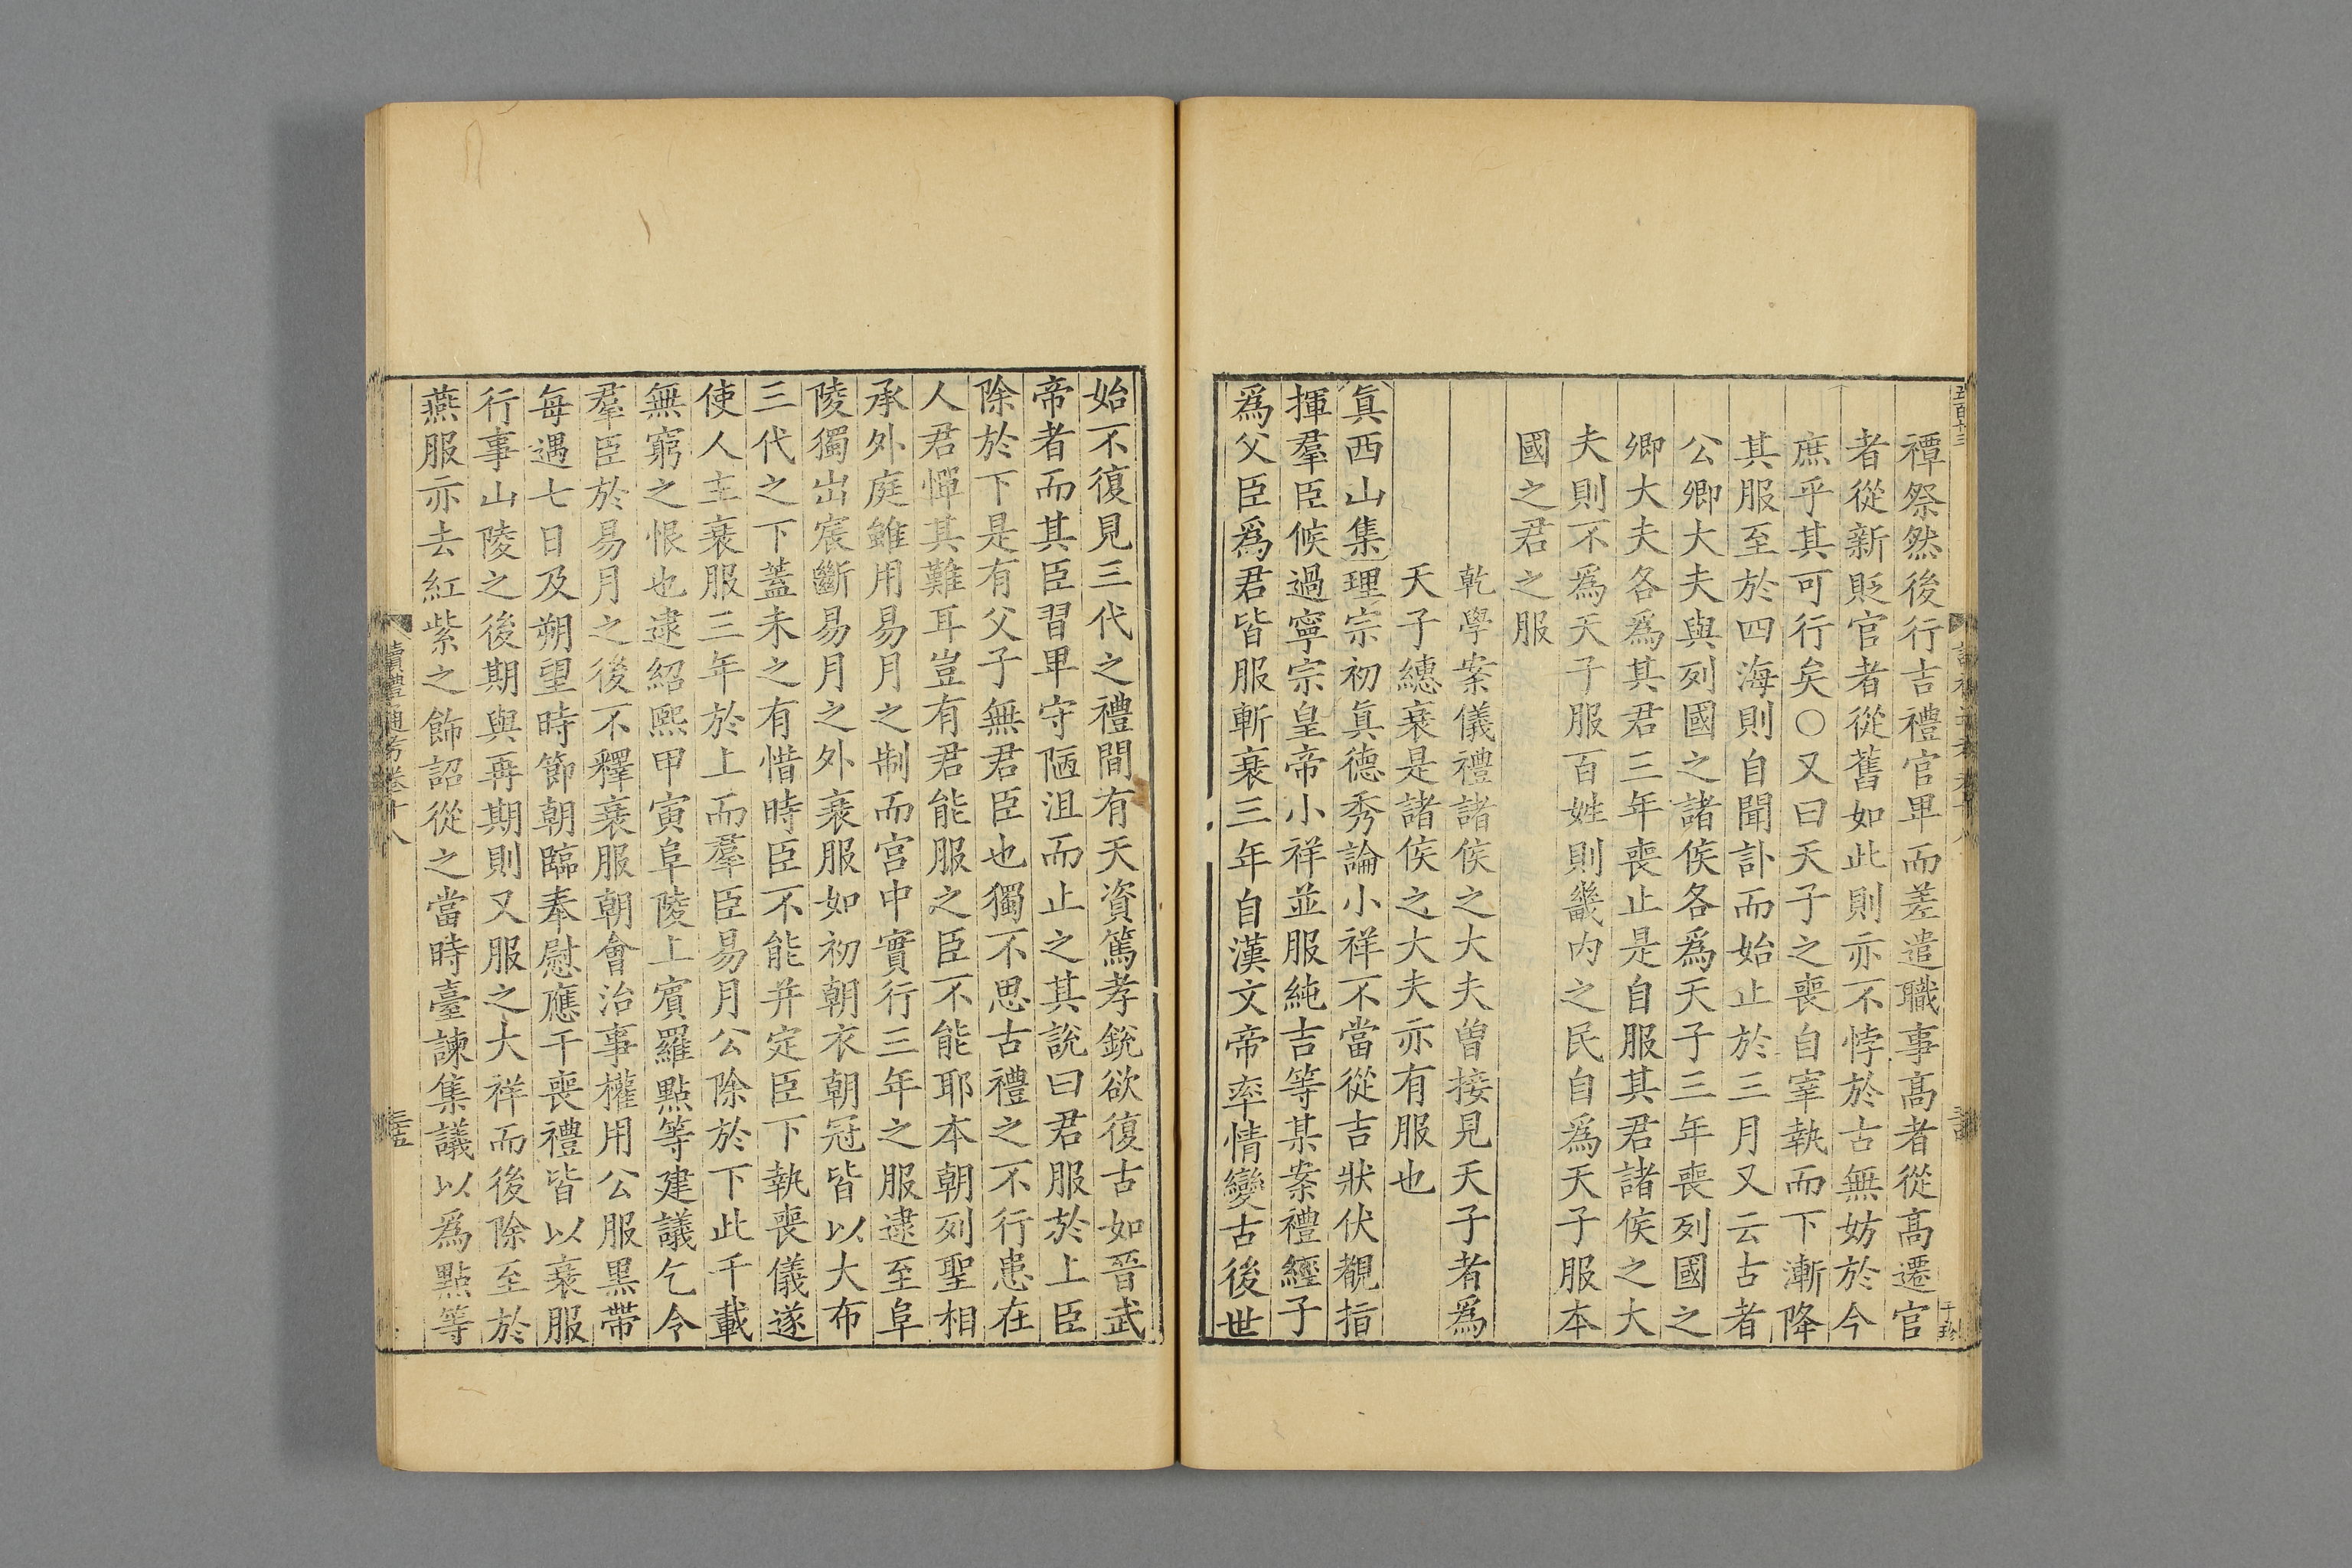 五百十三
禫祭然後行吉禮官卑而差遣職事髙者從髙遷官
者從新貶官者從舊如此則亦不悖於古無妨於今
庶乎其可行矣○又曰天子之喪自宰執而下漸降
其服至於四海則自聞訃而始止於三月又云古者
公卿大夫與列國之諸侯各爲天子三年喪列國之
卿大夫各爲其君三年喪止是自服其君諸侯之大
夫則不爲天子服百姓則畿内之民自爲天子服本
國之君之服
乾學案儀禮諸侯之大夫曽接見天子者爲
天子繐衰是諸侯之大夫亦有服也
眞西山集理宗初眞德秀論小祥不當從吉狀伏覩指
揮羣臣候過寧宗皇帝小祥並服純吉等某案禮經子
爲父臣爲君皆服斬衰三年自漢文帝率情變古後世
始不復見三代之禮間有天資篤孝銳欲復古如晉武
帝者而其臣習卑守陋沮而止之其說曰君服於上臣
除於下是有父子無君臣也獨不思古禮之不行患在
人君憚其難耳豈有君能服之臣不能耶本朝列聖相
承外庭雖用易月之制而宫中實行三年之服逮至阜
陵獨出宸斷易月之外衰服如初朝衣朝冠皆以大布
三代之下蓋未之有惜時臣不能并定臣下執喪儀遂
使人主衰服三年於上而羣臣易月公除於下此千載
無窮之恨也逮紹熙甲寅阜陵上賓羅點等建議乞令
羣臣於易月之後不釋衰服朝會治事權用公服黑帶
每遇七日及朔望時節朝臨奉慰應干喪禮皆以衰服
行事山陵之後期與再期則又服之大祥而後除至於
燕服亦去紅紫之飾詔從之當時臺諫集議以爲點等
讀禮通考卷十八
三五